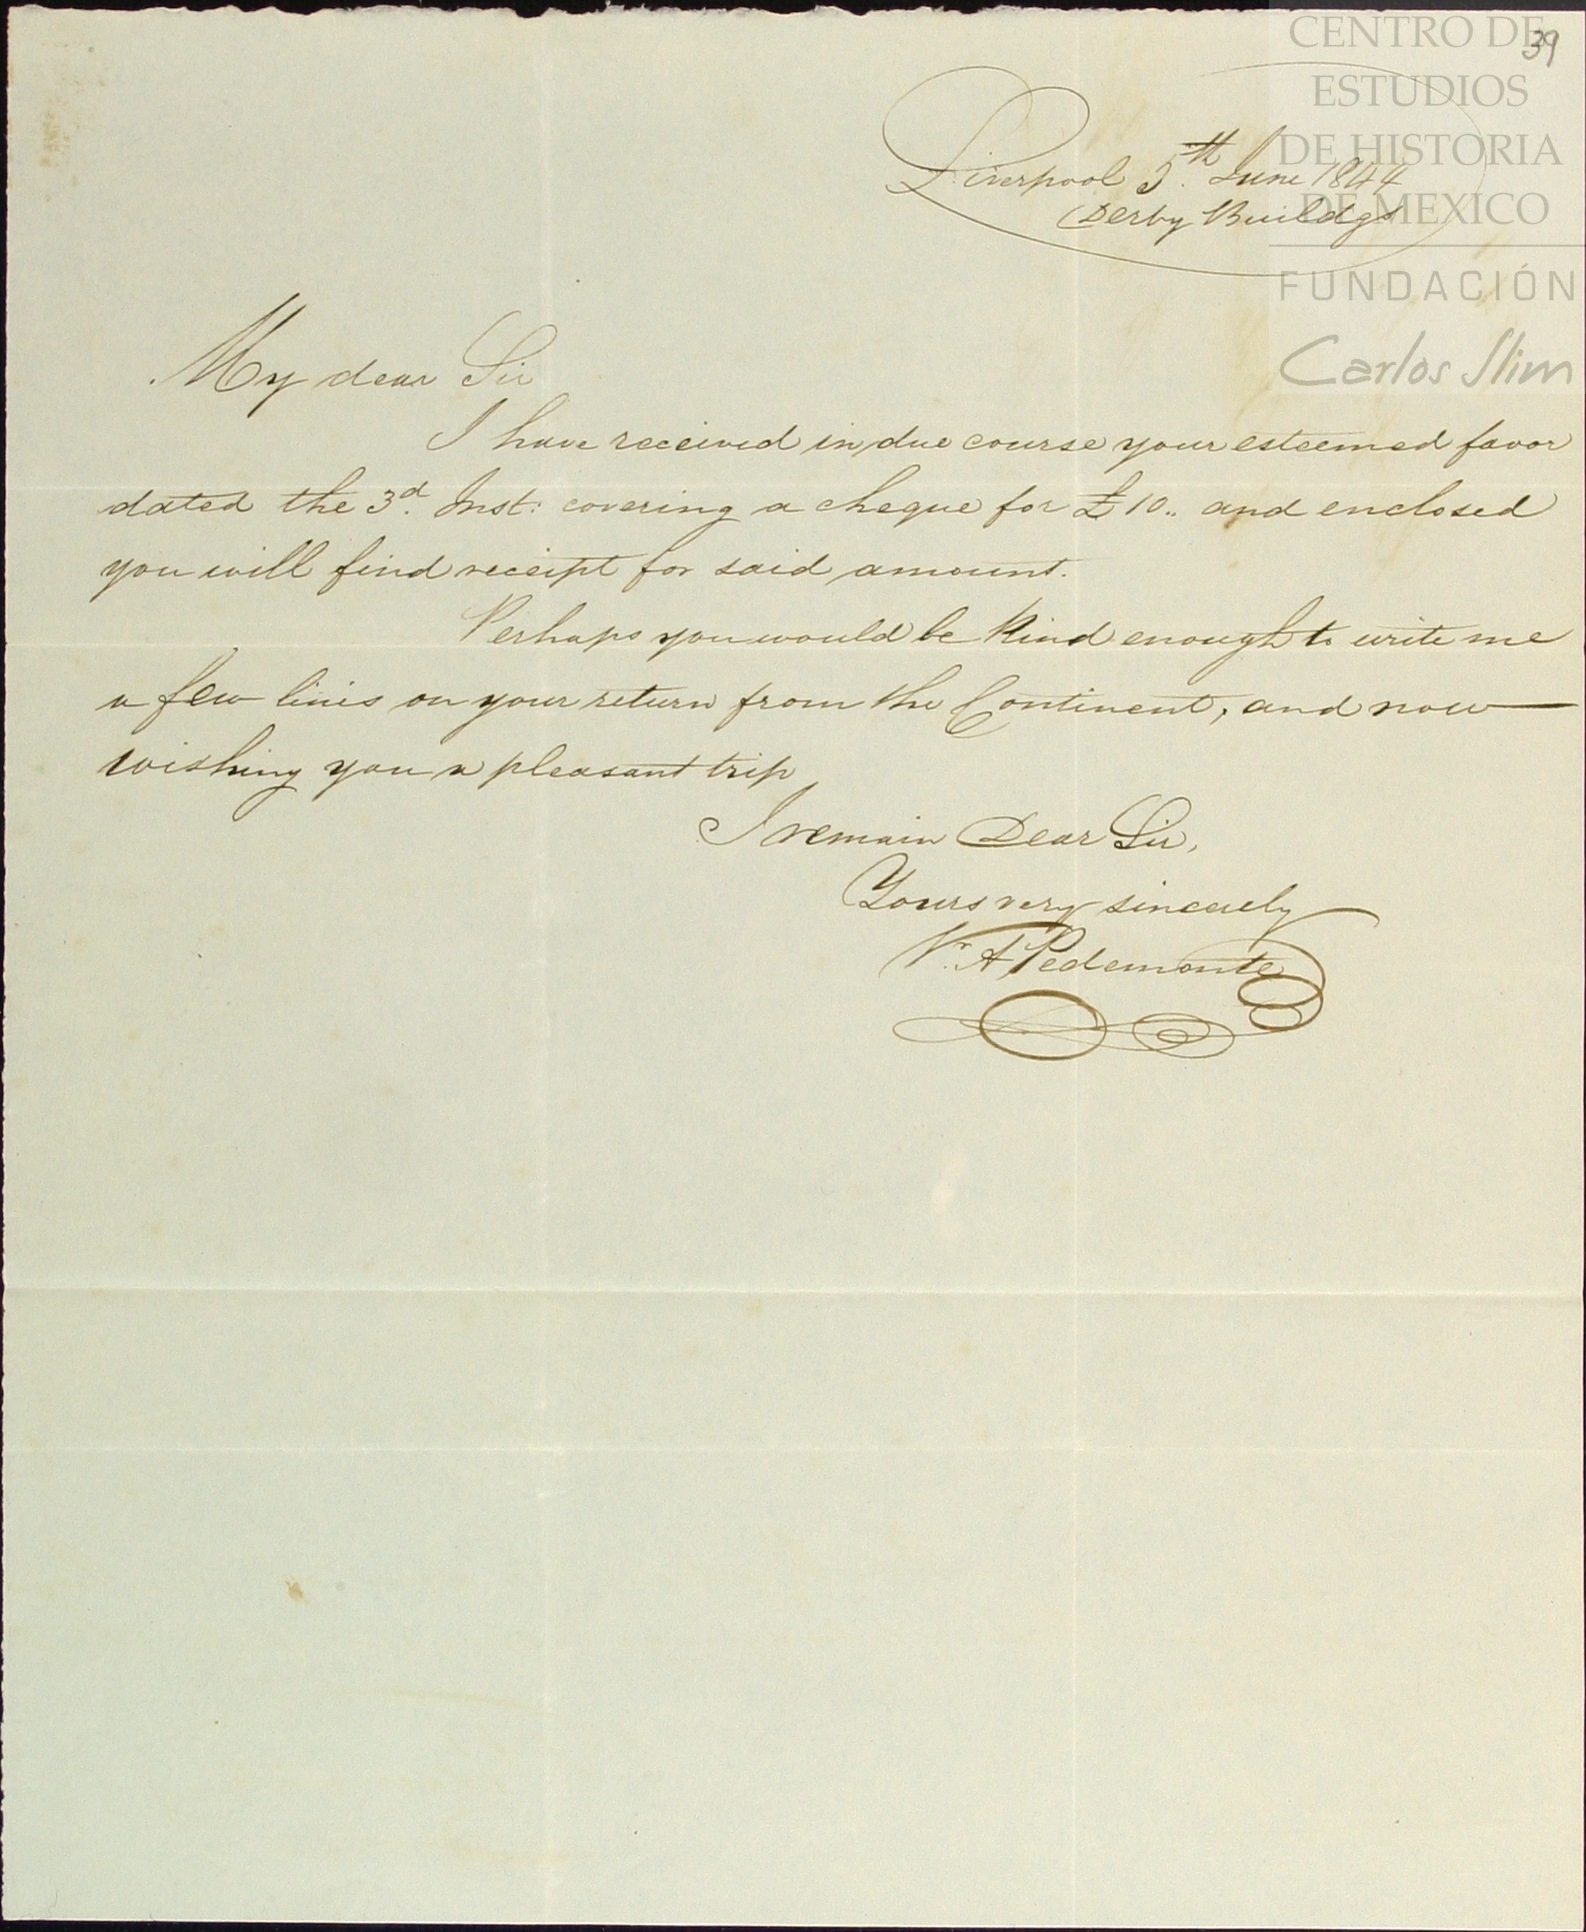 39
CENTRO DE
ESTUDIOS
DE HISTORIA
DE MEXICO
FUNDACIÓN
Carlos Slim
Liverpool 5.th June 1844
Derby Buildgs
My dear Sir
I have received in due course your esteemed favor
dated the 3.d Inst: covering a cheque for £10.. and enclosed
you will find receipt for said amount.
Perhaps you would be kind enough to write me
a few lines on your return from the Continent, and now
wishing you a pleasant trip
I remain Dear Sir,
Yours very sincerely
A Pedemonte